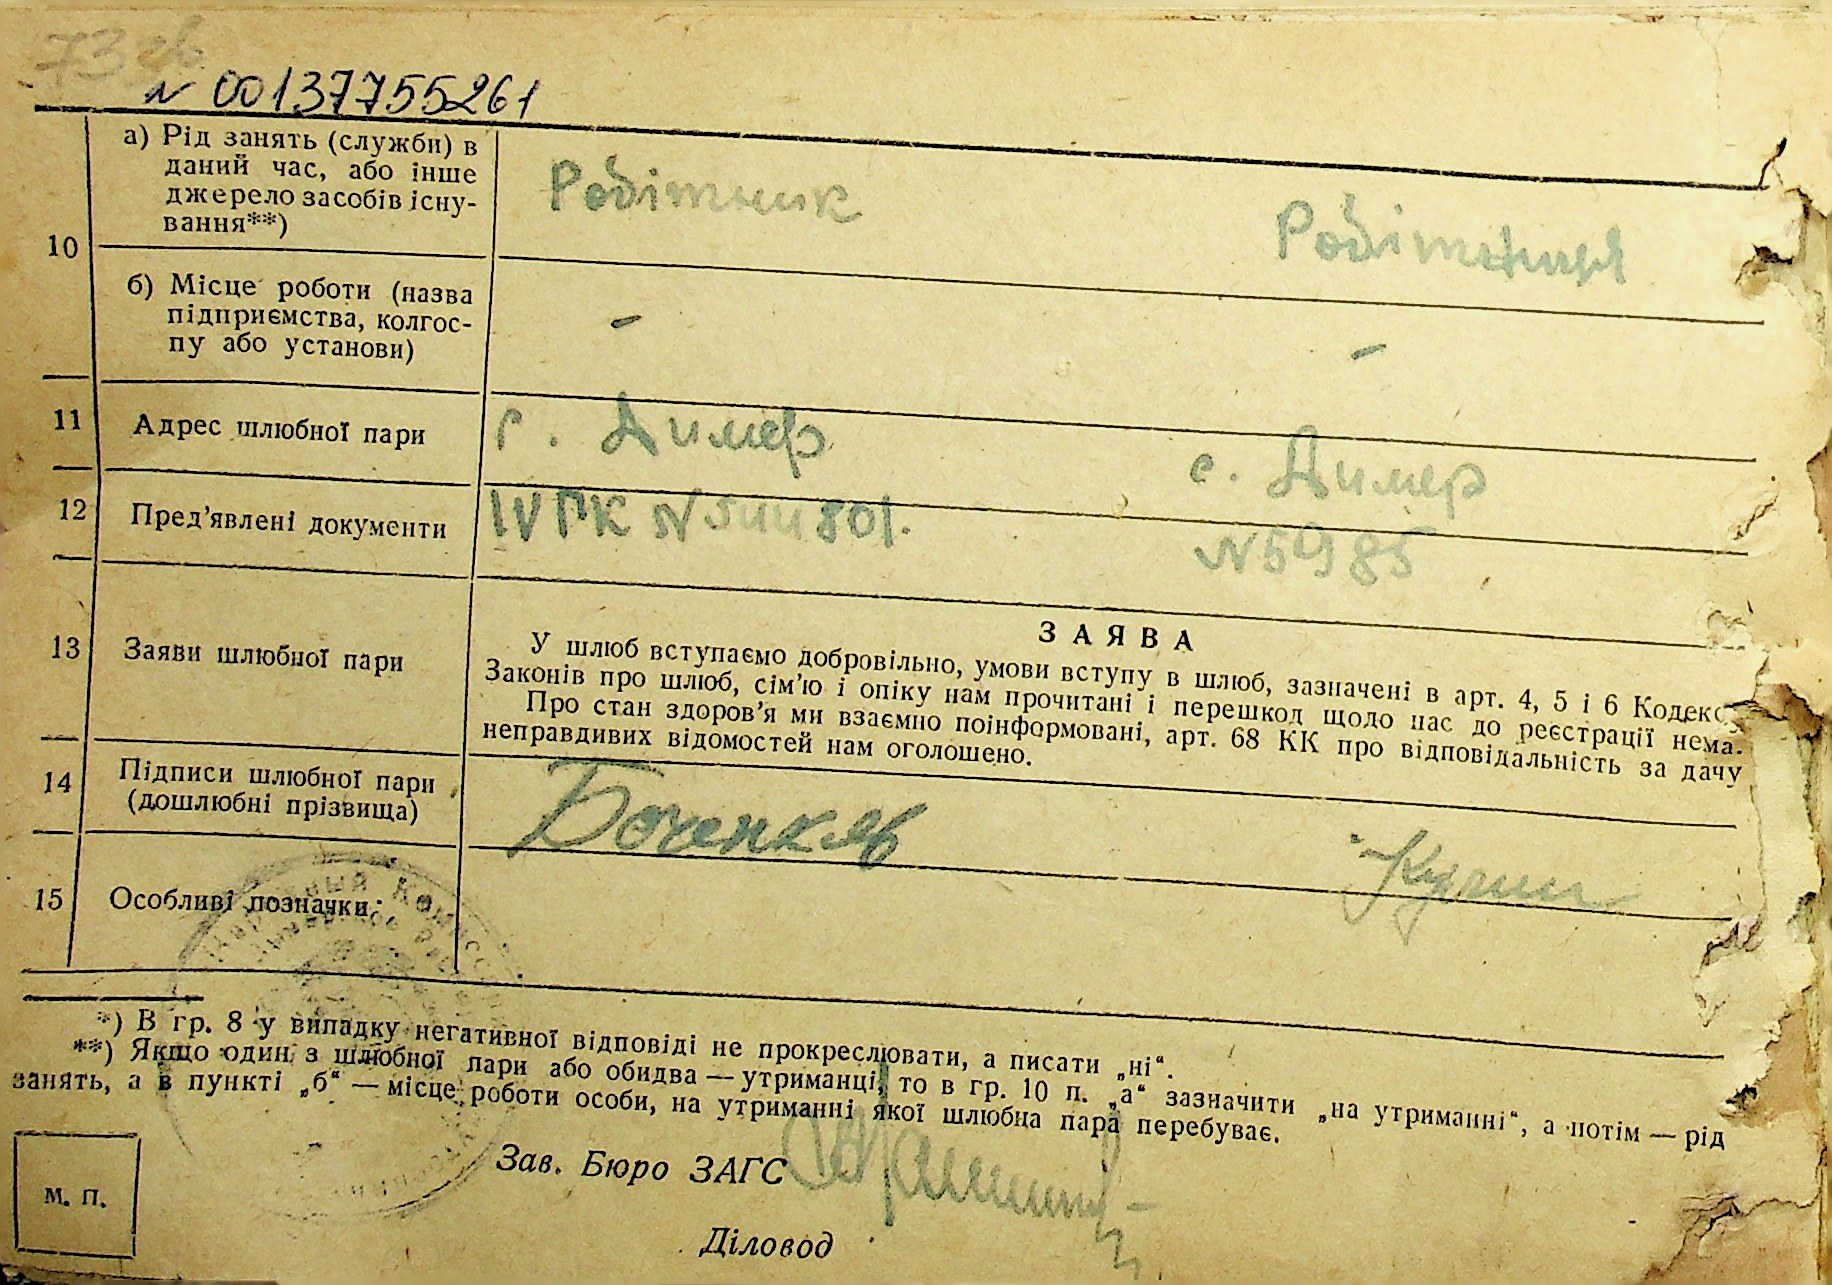 73 зв
№ 00137755261
10
а) Рід занять (служби) в
даний час, або інше
джерело засобів існу-
вання**)
Робітник
Робітниця
б) Місце роботи (назва
підприємства, колгос-
пу або установи)
-
-
11
Адрес шлюбної пари
с. Димер
с. Димер
12
Пред'явлені документи
IV ПК №
№ 5985
13
Заяви шлюбної пари
ЗАЯВА
У шлюб вступаємо добровільно, умови вступу в шлюб, зазначені в арт. 4, 5 і 6 Кодексу
Законів про шлюб, сім'ю і опіку нам прочитані і перешкод щодо нас до реєстрації нема.
Про стан здоров'я ми взаємно поінформовані, арт. 68 КК про відповідальність за дачу
неправдивих відомостей нам оголошено.
14
Підписи шлюбної пари
(дошлюбні прізвища)
15
Особливі позначки
*) В гр. 8 у випадку негативної відповіді не прокреслювати, а писати „ні“.
**) Якщо один з шлюбної пари або обидва — утриманці, то в гр. 10 п. „а“ зазначити „на утриманні“, а потім — рід
занять, а в пункті „б“ — місце роботи особи, на утриманні якої шлюбна пара перебуває.
Зав. Бюро ЗАГС
М. П.
Діловод